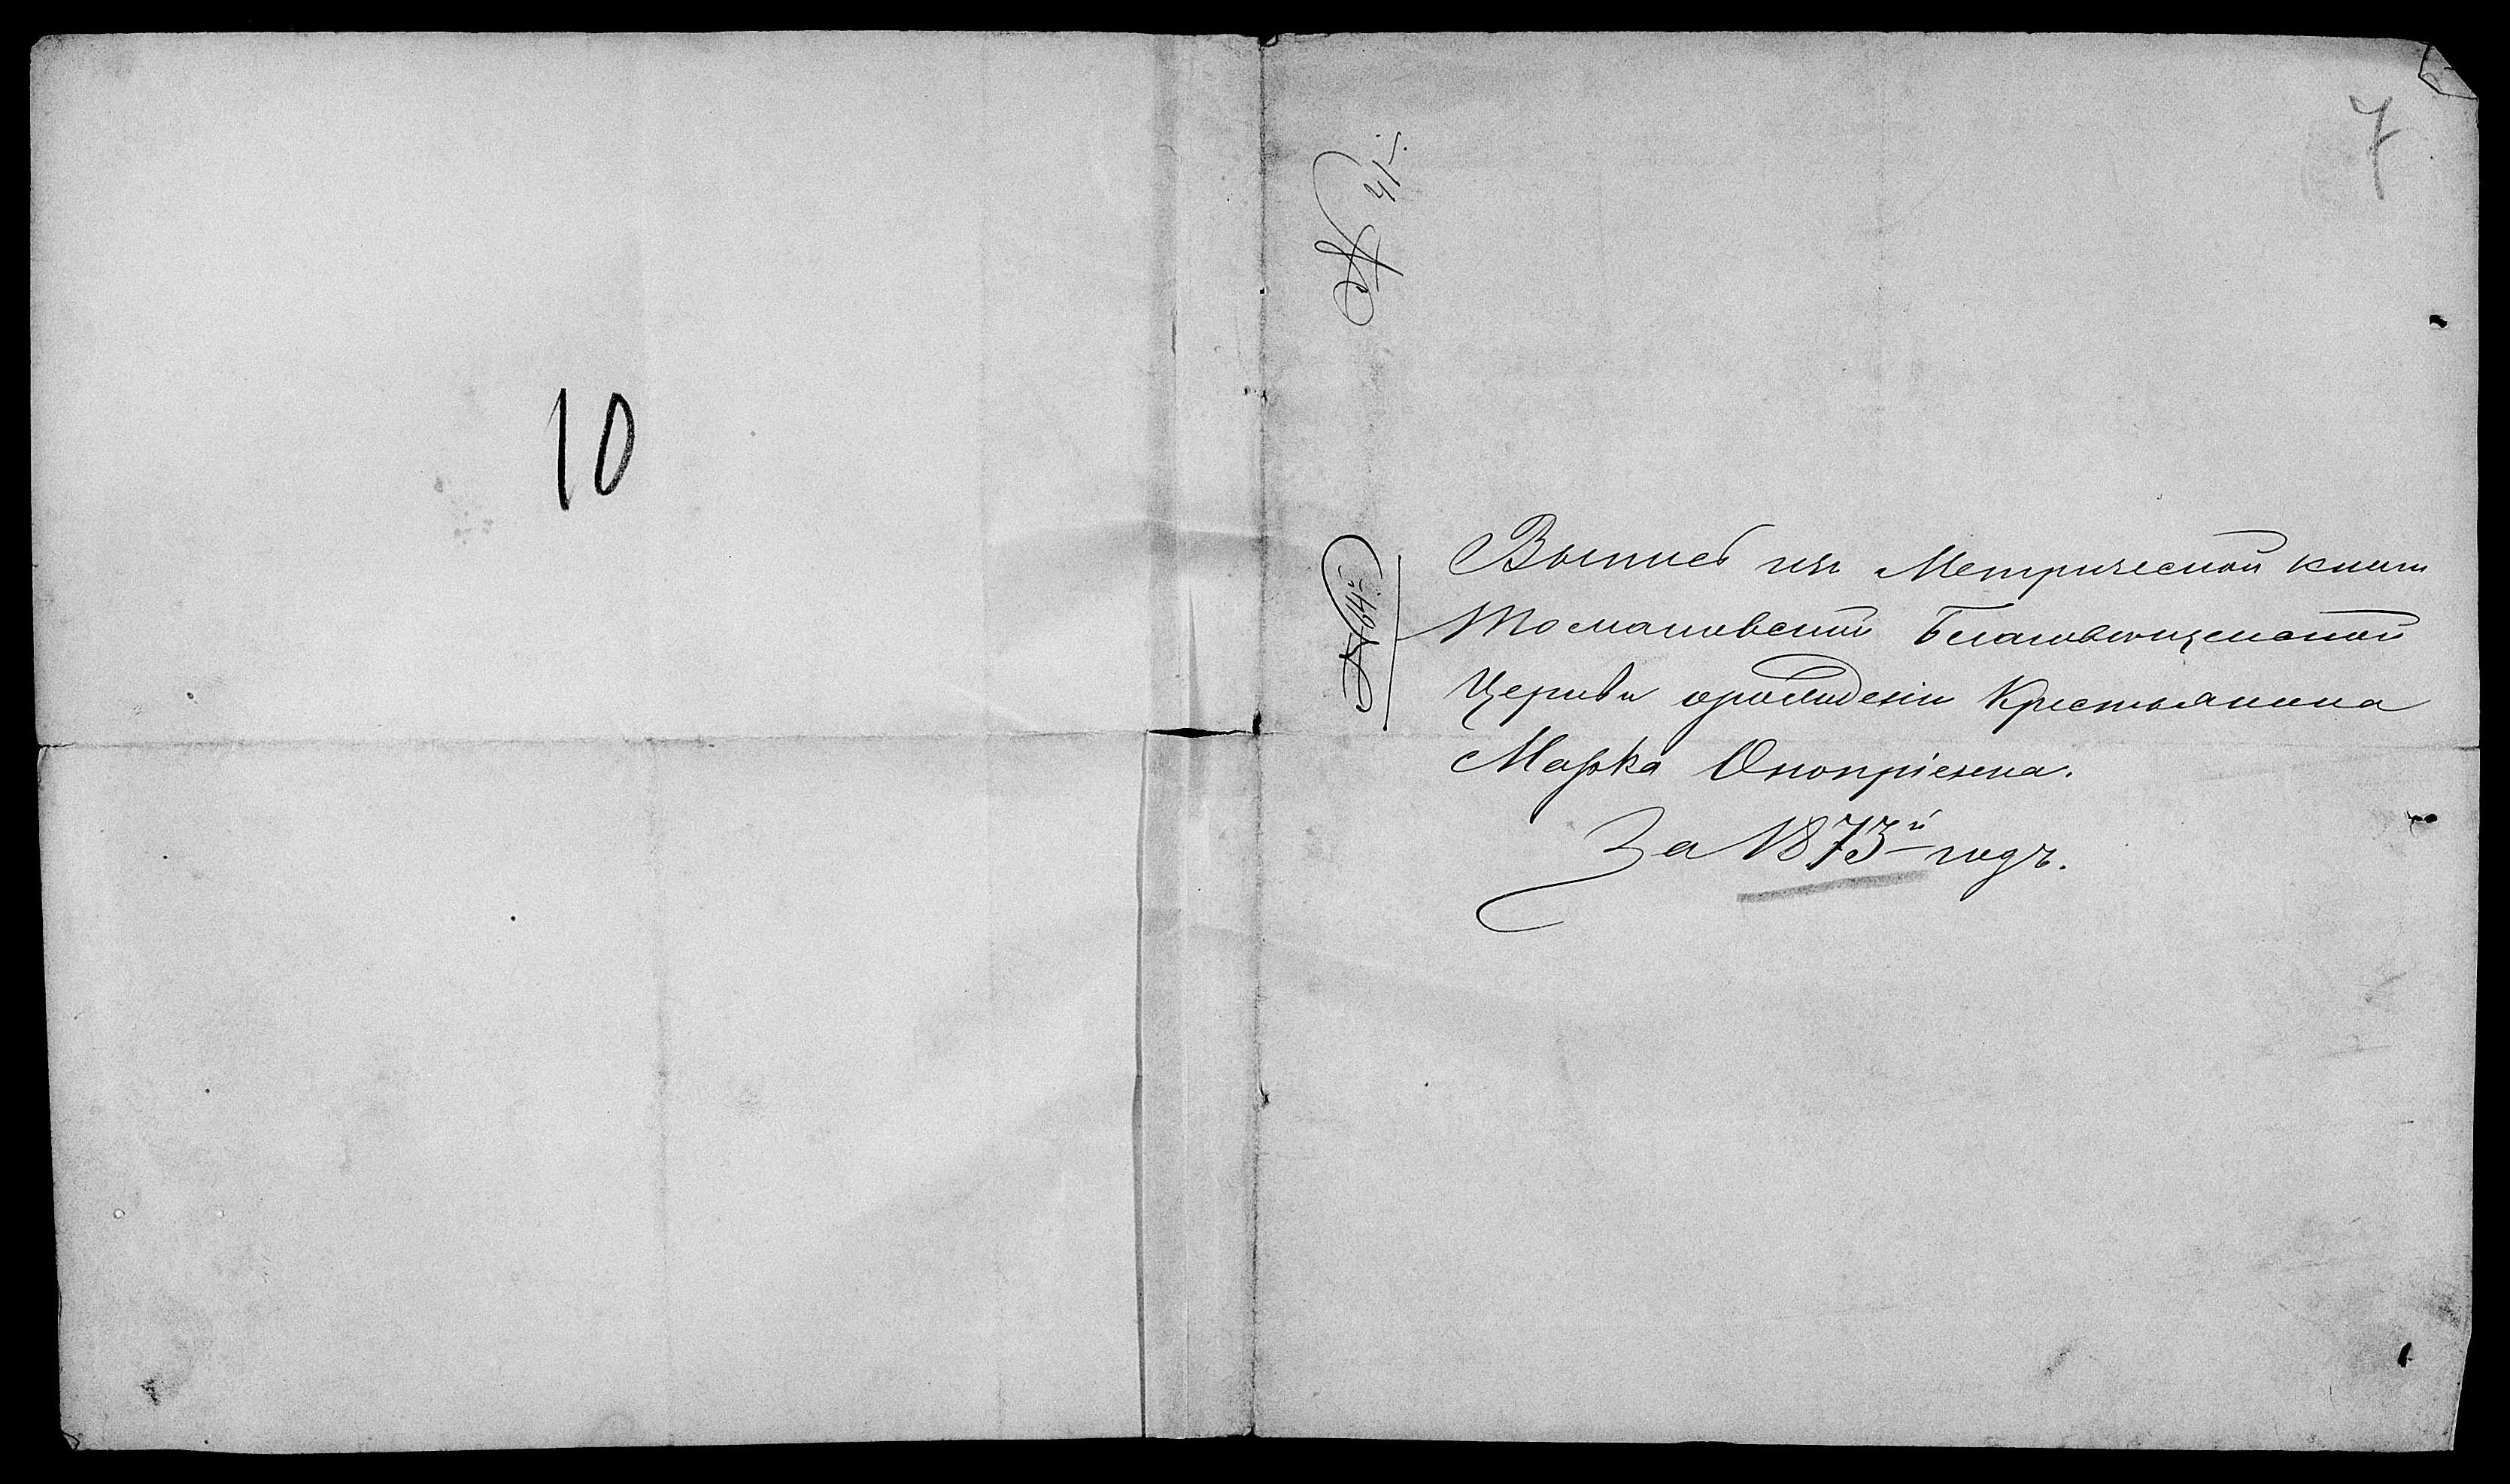 10
7
№ 41.
№ 64й
Выпись изъ Метрической книги
Томаковской Благовѣщенской
Церкви орожденіи Крестьянина
Марка Оноприенка.
За 1873й годъ.